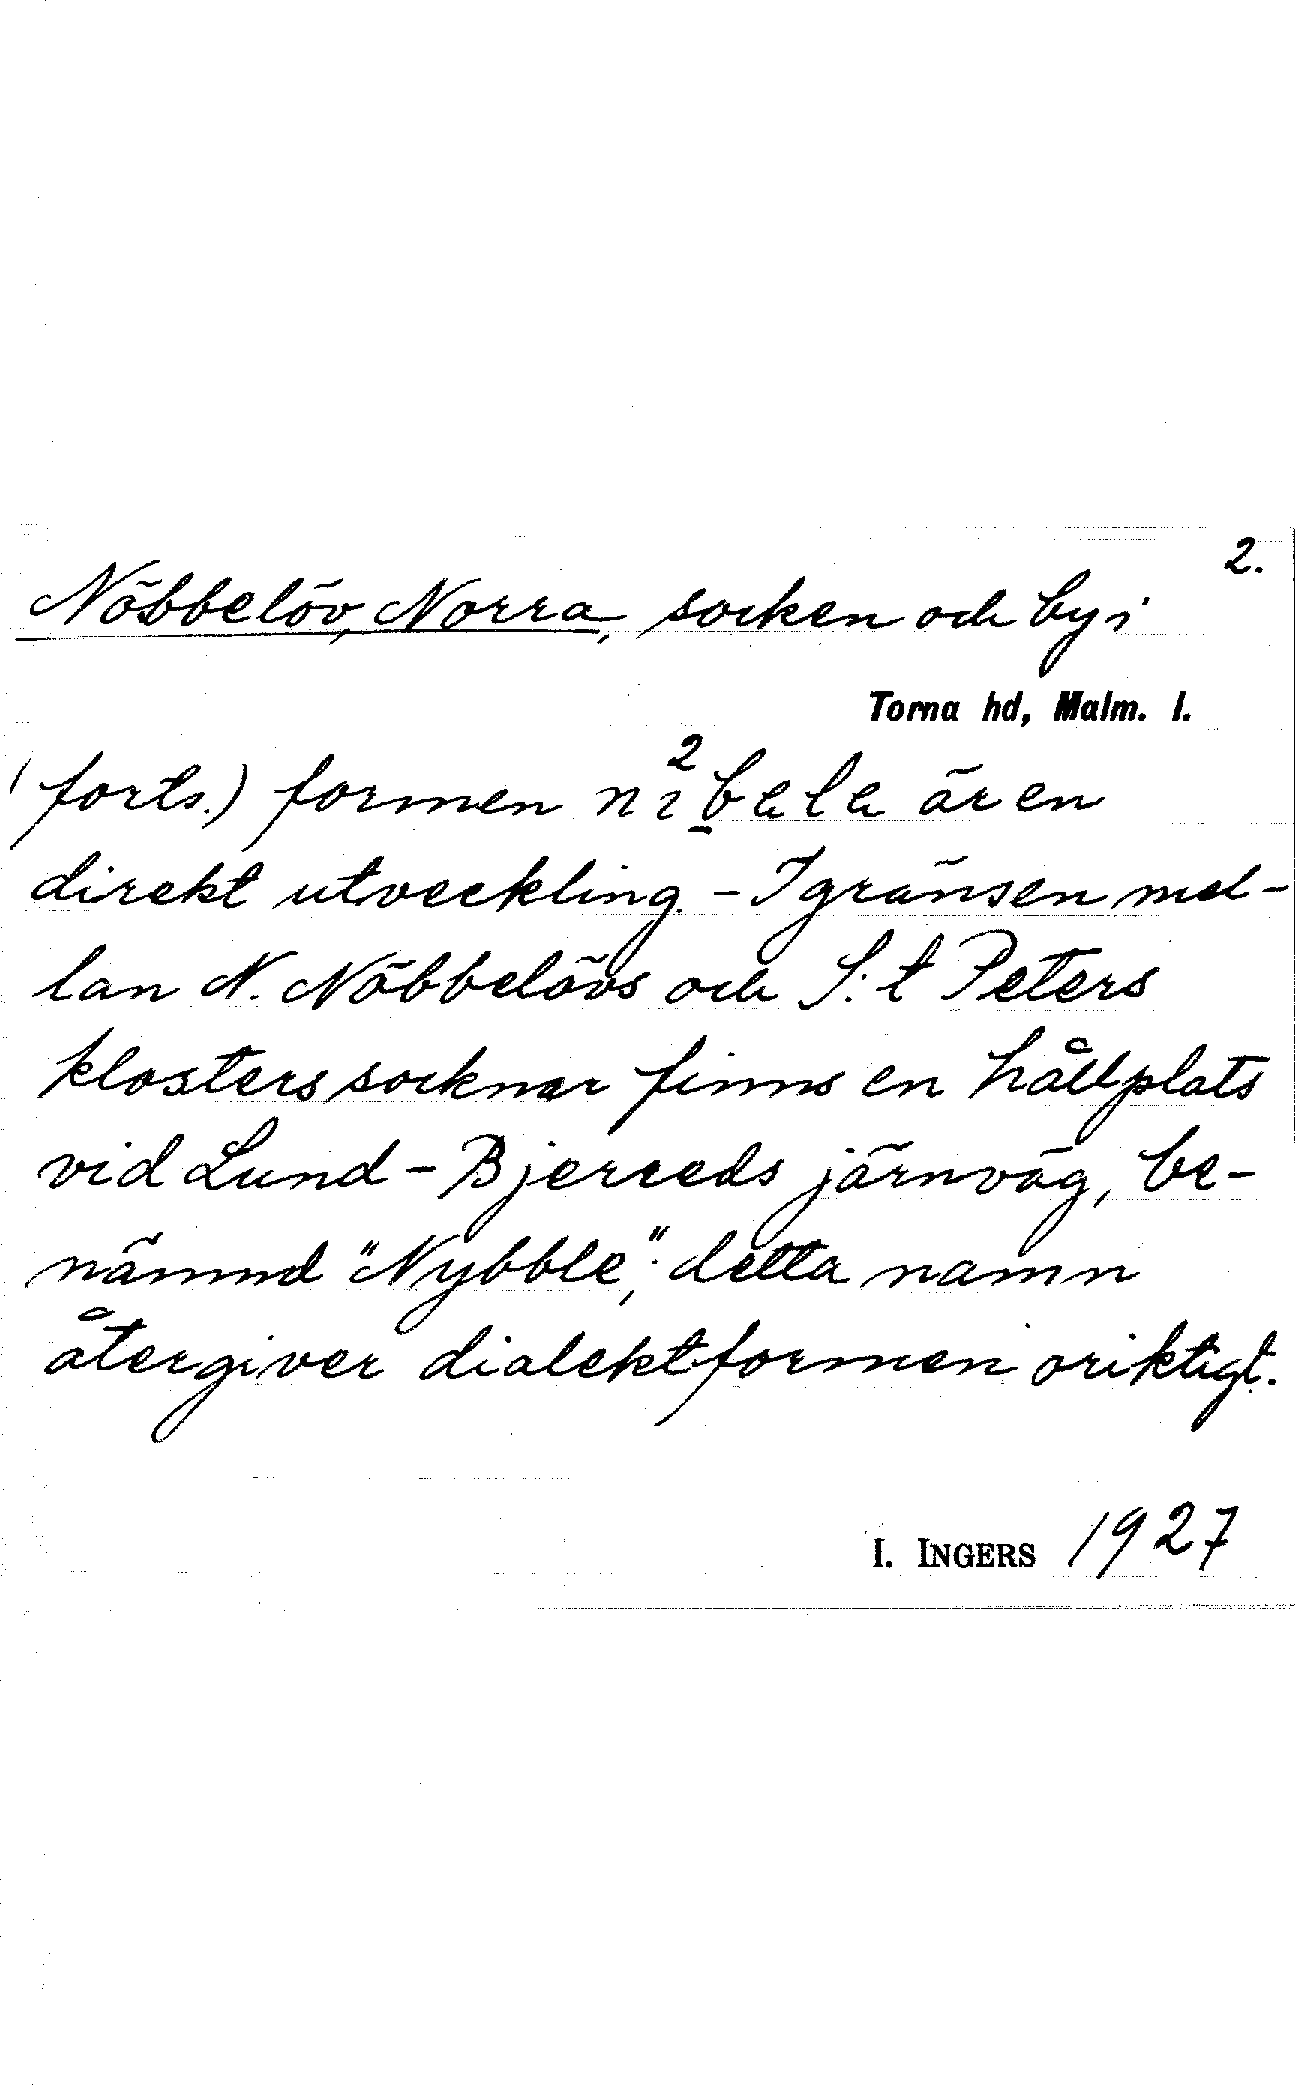 2.
Nöbbelöv, Norra, socken och by i
Torna hd, Malm. l.
(forts.) formen är en
direkt utveckling. - I gränsen mel-
lan N. Nöbbelövs och S:t Peters
klosters socknar finns en hållplats
vid Lund - Bjerreds järnväg, be-
nämnd "Nybble"; detta namn
återgiver dialektformen oriktigt.
I. INGERS 1927